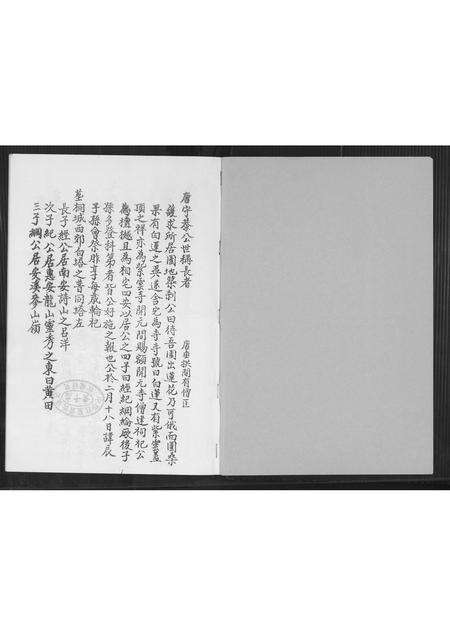 唐守恭公世稱長者 唐垂拱間有僧匡
護求所居園地築剎公曰待吾園出蓮花乃可俄而園桑
果有白蓮之異遂含宅為寺寺號曰白蓮又有紫雲蓋
頂之祥亦為紫雲寺開元間賜額開元寺僧建祠祀公
為檀樾且為相宅四安以居公之四子曰經紀綱綸厥後子
孫多登科第者皆公好施之報也公於二月十八日諱辰
子孫會祭昨享每歲輪祀
墓桐城西郊白塔之普同塔左
長子經公居南安詩山之呂洋
次子紀公居惠安龍山靈秀之東曰黃田
三子綱公居安溪參山嶺